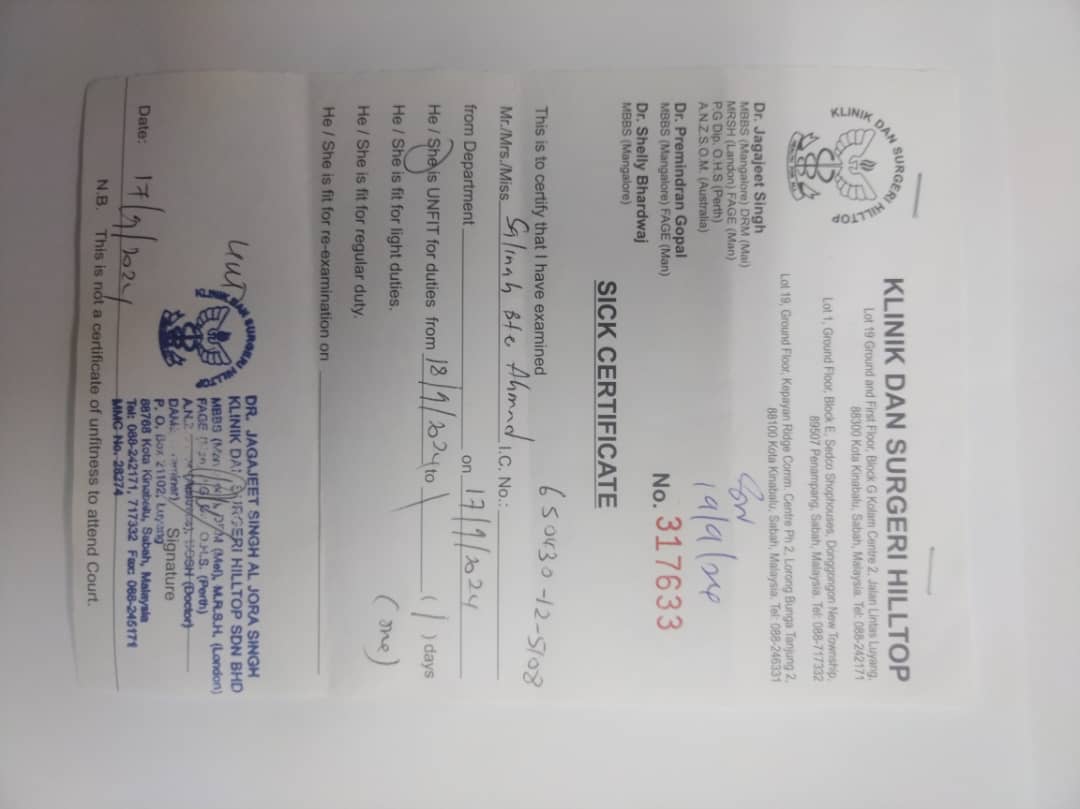 KLINIK DAN SURGERI HILLTOP
HEALTH FOR ALL
KLINIK DAN SURGERI HILLTOP
Lot 19 Ground and First Floor, Block G Kolam Centre 2, Jalan Lintas Luyang,
88300 Kota Kinabalu, Sabah, Malaysia. Tel: 088-242171
Lot 1, Ground Floor, Block E, Sedco Shophouses, Donggongon New Township,
89507 Penampang, Sabah, Malaysia. Tel: 088-717332
Lot 19, Ground Floor, Kepayan Ridge Comm. Centre Ph 2, Lorong Bunga Tanjung 2,
88100 Kota Kinabalu, Sabah, Malaysia. Tel: 088-246331
Dr. Jagajeet Singh
MBBS (Mangalore) DRM (Mal)
MRSH (Landon) FAGE (Man)
P.G Dip. O.H.S (Perth)
A.N.Z.S.O.M. (Australia)
Dr. Premindran Gopal
MBBS (Mangalore) FAGE (Man)
Dr. Shelly Bhardwaj
MBBS (Mangalore)
19/9/24
No. 317633
SICK CERTIFICATE
This is to certify that I have examined 650430-12-5108
Mr./Mrs./Miss Salinah Bte Ahmad I.C. No.:
from Department on 17/9/2024
He / She is UNFIT for duties from 18/9/2024 to \ ( 1 ) days
He / She is fit for light duties. (one)
He / She is fit for regular duty.
He / She is fit for re-examination on
KLINIK DAN SURGERI HILLTOP
DR. JAGAJEET SINGH AL JORA SINGH
KLINIK DAN SURGERI HILLTOP SDN BHD
MBBS (Man DRM (Mel), M.R.S.H. (London)
FAGE O.H.S. (Perth)
A.N.Z (Doctor)
Signature
P. O. Box 21102, Luyang
88768 Kota Kinabalu, Sabah, Malaysia
Tel: 088-242171, 717332 Fax: 088-245171
MMC No. 28274
Date: 17/9/2024
N.B. This is not a certificate of unfitness to attend Court.